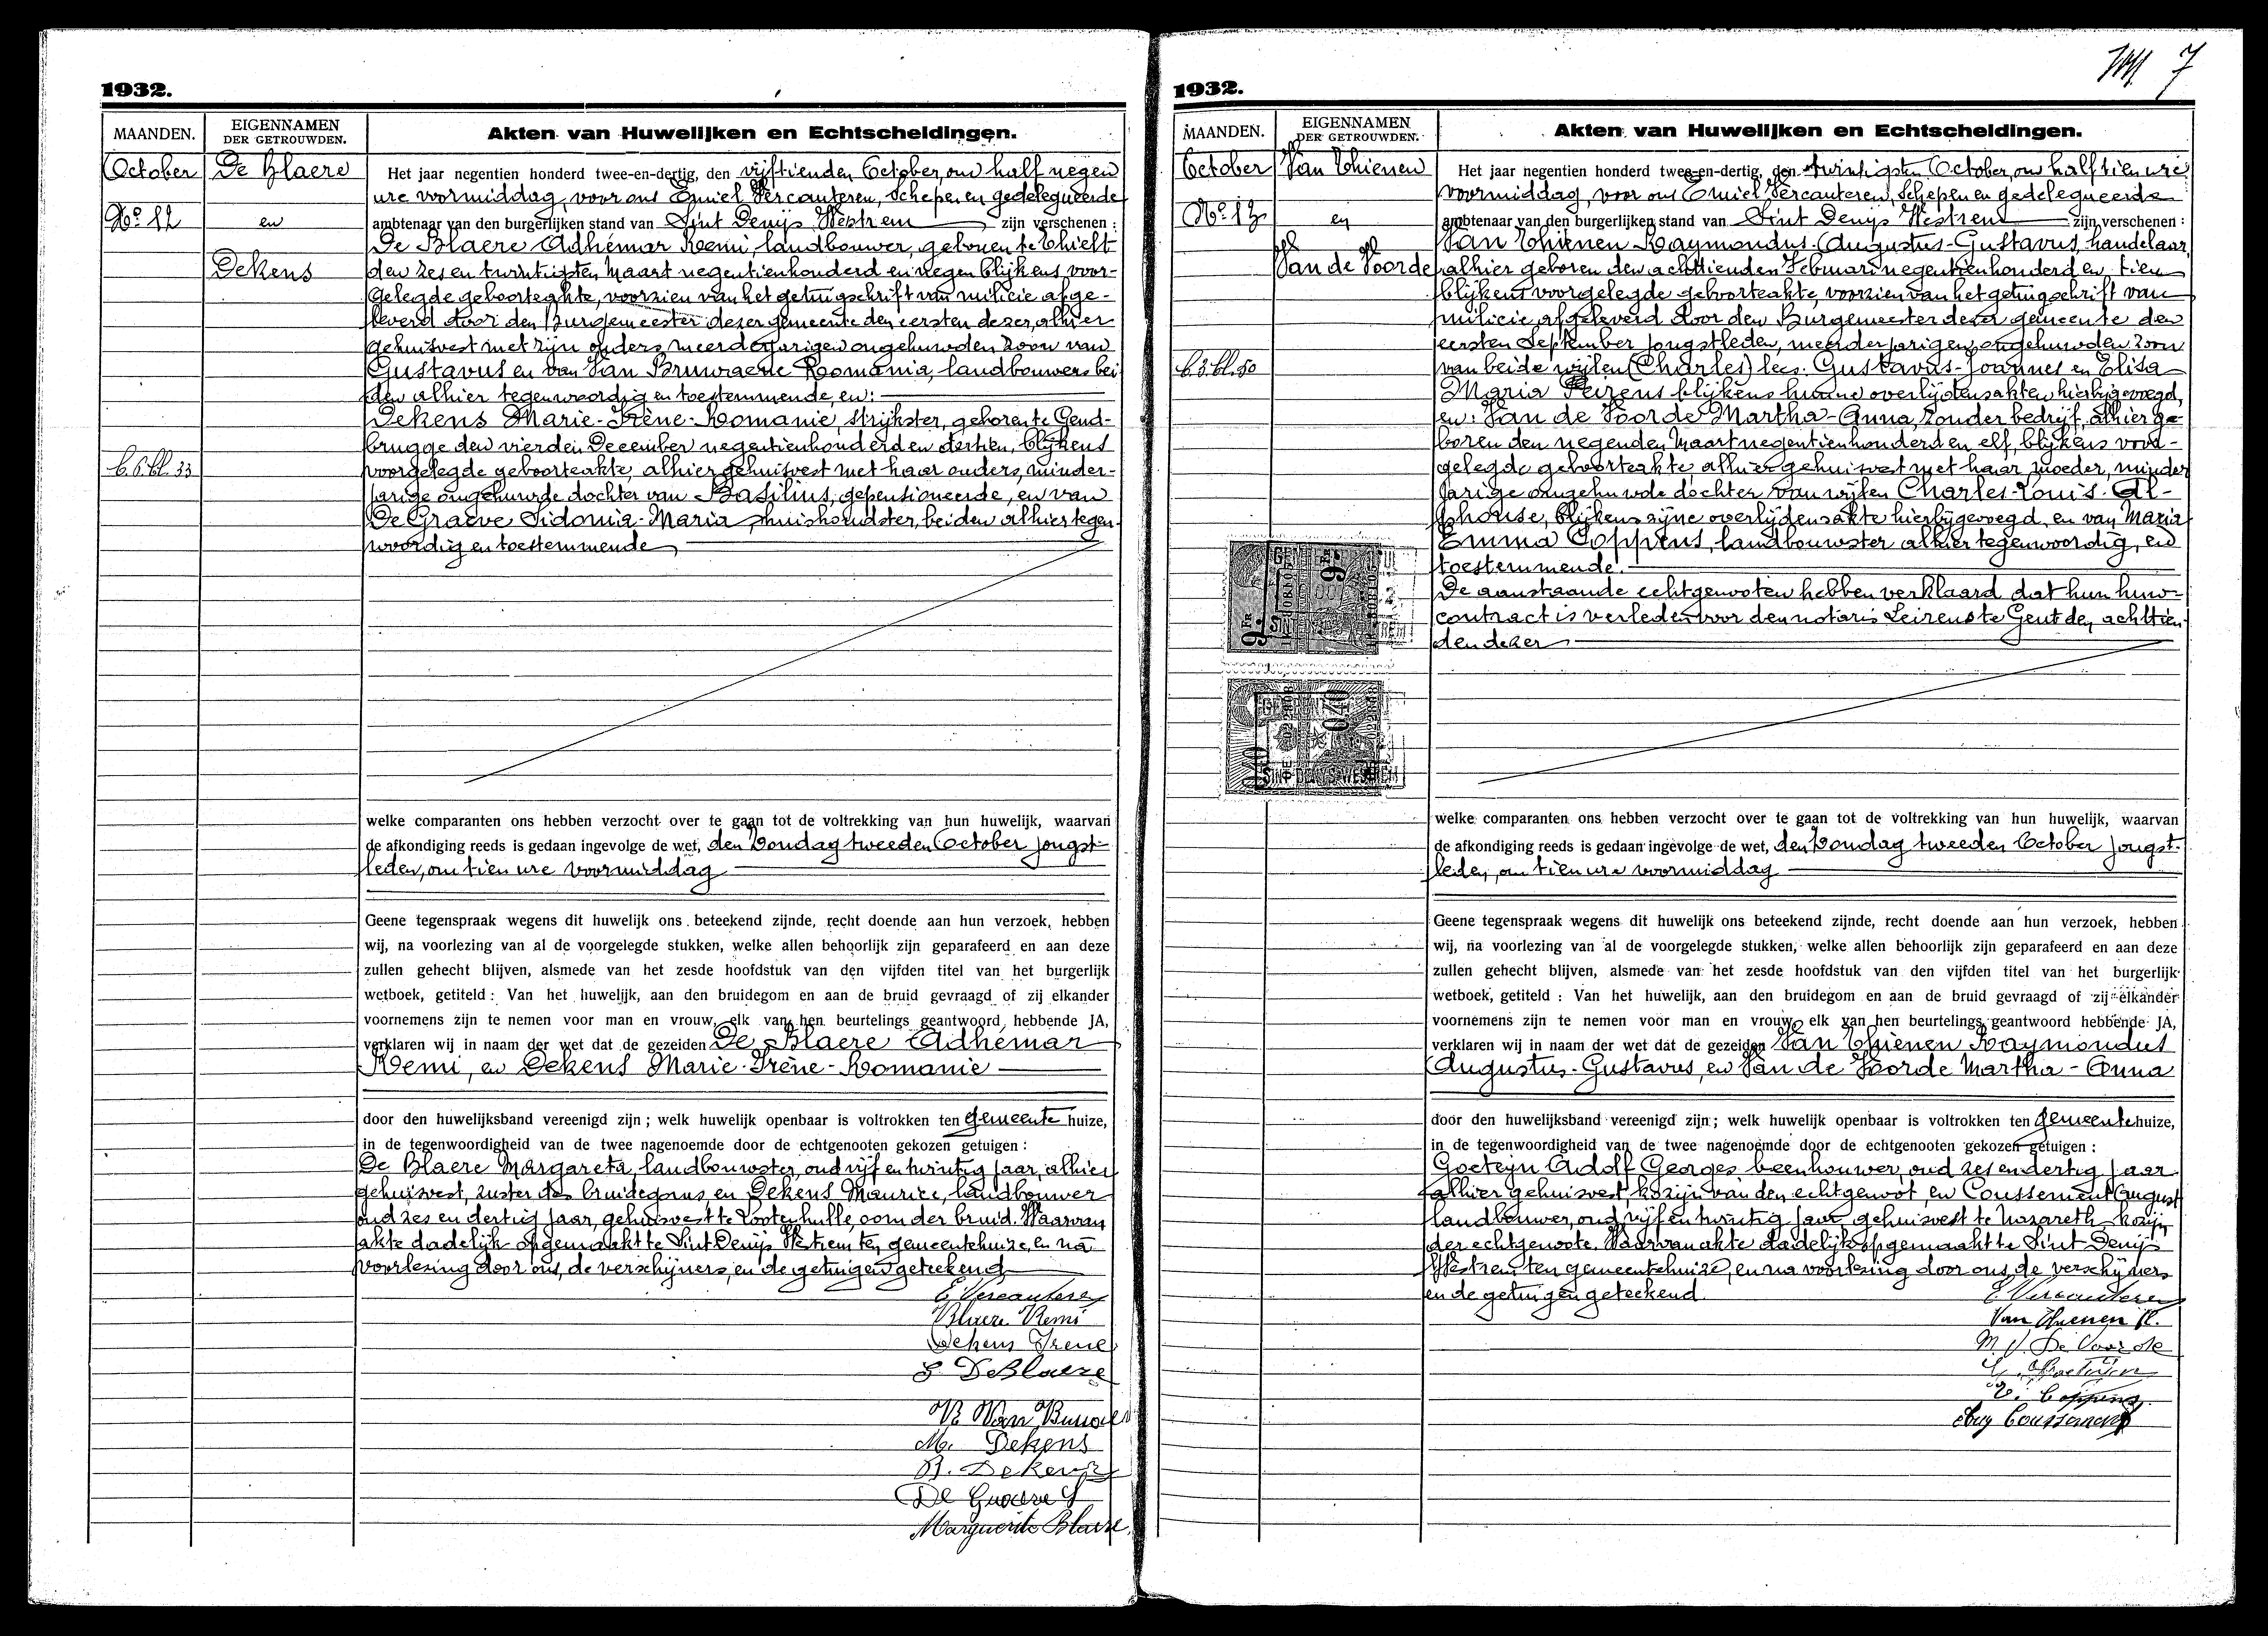 1932.
MAANDEN.
EIGENNAMEN
DER GETROUWDEN.
Akten van Huwelijken en Echtscheidingen.
October
De Blaere
No 12
en
Dekens
b.6.bl.33
Het jaar negentien honderd twee-en-dertig, den vijftienden October, om half negen
ure voormiddag, voor ons Emiel Vercauteren, Schepen en gedelegueerde
ambtenaar van den burgerlijken stand van Sint Denijs Westrem zijn verschenen :
De Blaere Adhémar Remi, landbouwer, geboren te Thielt
den zes en twintigsten Maart negentienhonderd en negen blijkens voor-
gelegde geboorteakte, voorzien van het getuigschrift van milicie afge-
leverd door den Burgemeester dezer gemeente den eersten dezer, alhier
gehuisvest met zijn ouders meerderjarigen ongehuwden zoon van
Gustavus en van Van Bruwaene Romania, landbouwers bei
den alhier tegenwoordig en toestemmende, en:
Dekens Marie-Irène-Romanie, strijkster, geboren te Gend-
brugge den vierden December negentienhonderd en dertien, blijkens
voorgelegde geboorteakte, alhier gehuisvest met haar ouders, minder-
jarige ongehuwde dochter van Basilius, gepensioneerde, en van
De Graeve Sidonia-Maria, huishoudster, beiden alhier tegen-
woordig en toestemmende
welke comparanten ons hebben verzocht over te gaan tot de voltrekking van hun huwelijk, waarvan
de afkondiging reeds is gedaan ingevolge de wet, den Zondag tweeden October jongst-
leden, om tien ure voormiddag
Geene tegenspraak wegens dit huwelijk ons beteekend zijnde, recht doende aan hun verzoek, hebben
wij, na voorlezing van al de voorgelegde stukken, welke allen behoorlijk zijn geparafeerd en aan deze
zullen gehecht blijven, alsmede van het zesde hoofdstuk van den vijfden titel van het burgerlijk
wetboek, getiteld : Van het huwelijk, aan den bruidegom en aan de bruid gevraagd of zij elkander
voornemens zijn te nemen voor man en vrouw, elk van hen beurtelings geantwoord hebbende JA,
verklaren wij in naam der wet dat de gezeiden De Blaere Adhémar
Remi, en Dekens Marie-Irène-Romanie
door den huwelijksband vereenigd zijn ; welk huwelijk openbaar is voltrokken ten gemeente huize,
in de tegenwoordigheid van de twee nagenoemde door de echtgenooten gekozen getuigen :
De Blaere Margareta, landbouwster, oud vijf en twintig jaar, alhier
gehuisvest, zuster des bruidegoms, en Dekens Maurice, landbouwer
oud zes en dertig jaar, gehuisvest te Lootenhulle, oom der bruid. Waarvan
akte dadelijk opgemaakt te Sint Denijs Westrem ten gemeentehuize, en na
voorlezing door ons, de verschijners, en de getuigen geteekend
E Vercauteren
Blaere Remi
Dekens Irene
G. DeBlaere
M. Dekens
B. Dekens
De Graeve S
Marguerite Blaere
7
1932.
MAANDEN.
EIGENNAMEN
DER GETROUWDEN.
Akten van Huwelijken en Echtscheidingen.
October
Van Thienen
No 13
en
Van de Voorde
b.3.bl.50
Het jaar negentien honderd twee-en-dertig, den twintigsten October, om half tien ure
voormiddag, voor ons Emiel Vercauteren, Schepen en gedelegueerde
ambtenaar van den burgerlijken stand van Sint Denijs Westrem zijn verschenen :
Van Thienen Raymondus-Augustus-Gustavus, handelaar,
alhier geboren den achttienden Februari negentienhonderd en tien
blijkens voorgelegde geboorteakte, voorzien van het getuigschrift van
milicie, afgeleverd door den Burgemeester dezer gemeente den
eersten September jongstleden, meerderjarigen, ongehuwden zoon
van beide wijlen (Charles) lees: Gustavus-Joannes en Elisa
Maria Peirens blijkens hunne overlijdensakten hierbijgevoegd,
en: Van de Voorde Martha-Anna, zonder bedrijf, alhier ge-
boren den negenden Maart negentienhonderd en elf, blijkens voor-
gelegde geboorteakte alhier gehuisvest met haar moeder, minder
jarige ongehuwde dochter van wijlen Charles-Louis-Al-
phonse, blijkens zijne overlijdensakte hierbijgevoegd, en van Maria
Emma Coppens, landbouwster alhier tegenwoordig, en
toestemmende.
De aanstaande echtgenooten hebben verklaard dat hun huw-
contract is verleden voor den notaris Leirens te Gent den achttien-
den dezer
welke comparanten ons hebben verzocht over te gaan tot de voltrekking van hun huwelijk, waarvan
de afkondiging reeds is gedaan ingevolge de wet, den Zondag tweeden October jongst-
leden, om tien ure voormiddag
Geene tegenspraak wegens dit huwelijk ons beteekend zijnde, recht doende aan hun verzoek, hebben
wij, na voorlezing van al de voorgelegde stukken, welke allen behoorlijk zijn geparafeerd en aan deze
zullen gehecht blijven, alsmede van het zesde hoofdstuk van den vijfden titel van het burgerlijk
wetboek, getiteld : Van het huwelijk, aan den bruidegom en aan de bruid gevraagd of zij elkander
voornemens zijn te nemen voor man en vrouw, elk van hen beurtelings geantwoord hebbende JA,
verklaren wij in naam der wet dat de gezeiden Van Thienen Raymondus
Augustus-Gustavus, en Van de Voorde Martha-Anna
door den huwelijksband vereenigd zijn ; welk huwelijk openbaar is voltrokken ten gemeente huize,
in de tegenwoordigheid van de twee nagenoemde door de echtgenooten gekozen getuigen :
Goeteyn Adolf Georges beenhouwer, oud zes en dertig jaar
alhier gehuisvest kozijn van den echtgenoot, en Coussement August
landbouwer, oud vijf en twintig jaar gehuisvest te Nazareth kozijn
der echtgenoote. Waarvan akte dadelijk opgemaakt te Sint Denijs
Westrem ten gemeentehuize, en na voorlezing door ons, de verschijners
en de getuigen geteekend
E Vercauteren
Van Thienen R.
M. V. De Voorde
E. Coppens
Aug Coussement